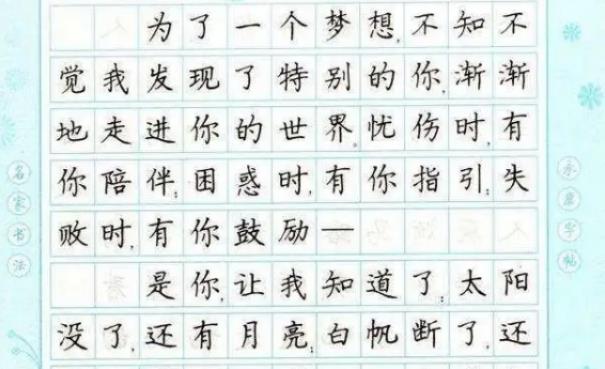 为了一个梦想,不知不
觉我发现了特别的你,渐渐
地走进你的世界,忧伤时,有
你陪伴;困惑时,有你指引;失
败时,有你鼓励—
是你,让我知道了;太阳
没了,还有月亮;白帆断了,还
名家书法
字帖